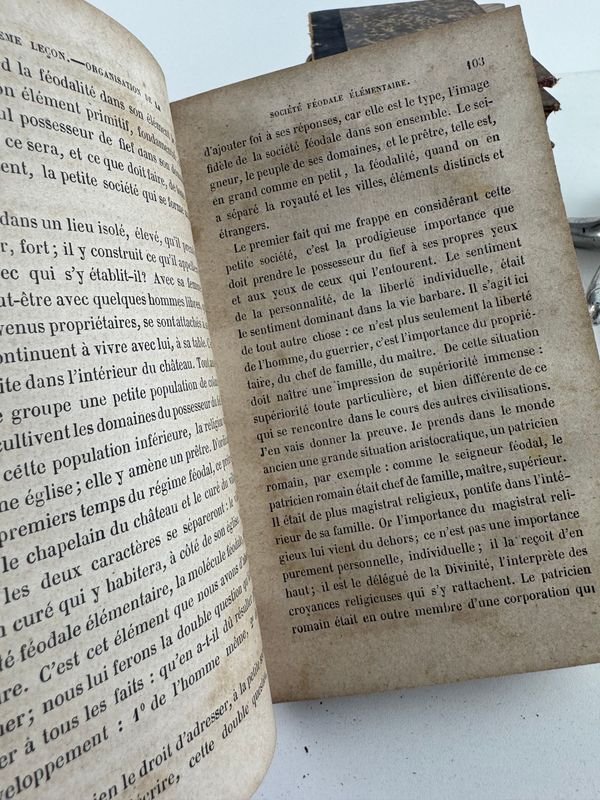 ÈME LEÇON.—ORGANISATION DE LA
d la féodalité dans son élément
on élément primitif, fondamental
ul possesseur de fief dans son
ce sera, et ce que doit faire, de
ent, la petite société qui se forme
dans un lieu isolé, élevé, qu'il
r, fort ; il y construit ce qu'il appelle
ec qui s'y établit-il? Avec sa femme
ut-être avec quelques hommes libres,
venus propriétaires, se sont attachés à
continuent à vivre avec lui, à sa table.
ite dans l'intérieur du château. Tout
e groupe une petite population de
cultivent les domaines du possesseur du
cette population inférieure, la religion
ne église ; elle y amène un prêtre. D'ordinaire
premiers temps du régime féodal, ce
le chapelain du château et le curé du
les deux caractères se sépareront : le
n curé qui y habitera, à côté de son église
té féodale élémentaire, la molécule féodale,
ire. C'est cet élément que nous avons d'abord
ner; nous lui ferons la double question qu'il
er à tous les faits : qu'en a-t-il dû résulter
veloppement : 1° de l'homme même,
en le droit d'adresser, à la petite
écrire, cette double question
SOCIÉTÉ FÉODALE ÉLÉMENTAIRE. 103
d'ajouter foi à ses réponses, car elle est le type, l'image
fidèle de la société féodale dans son ensemble. Le sei-
gneur, le peuple de ses domaines, et le prêtre, telle est,
en grand comme en petit, la féodalité, quand on en
a séparé la royauté et les villes, éléments distincts et
étrangers.
Le premier fait qui me frappe en considérant cette
petite société, c'est la prodigieuse importance que
doit prendre le possesseur du fief à ses propres yeux
et aux yeux de ceux qui l'entourent. Le sentiment
de la personnalité, de la liberté individuelle, était
le sentiment dominant dans la vie barbare. Il s'agit ici
de tout autre chose : ce n'est plus seulement la liberté
de l'homme, du guerrier, c'est l'importance du proprié-
taire, du chef de famille, du maître. De cette situation
doit naître une impression de supériorité immense :
supériorité toute particulière, et bien différente de ce
qui se rencontre dans le cours des autres civilisations.
J'en vais donner la preuve. Je prends dans le monde
ancien une grande situation aristocratique, un patricien
romain, par exemple : comme le seigneur féodal, le
patricien romain était chef de famille, maître, supérieur.
Il était de plus magistrat religieux, pontife dans l'inté-
rieur de sa famille. Or l'importance du magistrat reli-
gieux lui vient du dehors ; ce n'est pas une importance
purement personnelle, individuelle ; il la reçoit d'en
haut ; il est le délégué de la Divinité, l'interprète des
croyances religieuses qui s'y rattachent. Le patricien
romain était en outre membre d'une corporation qui